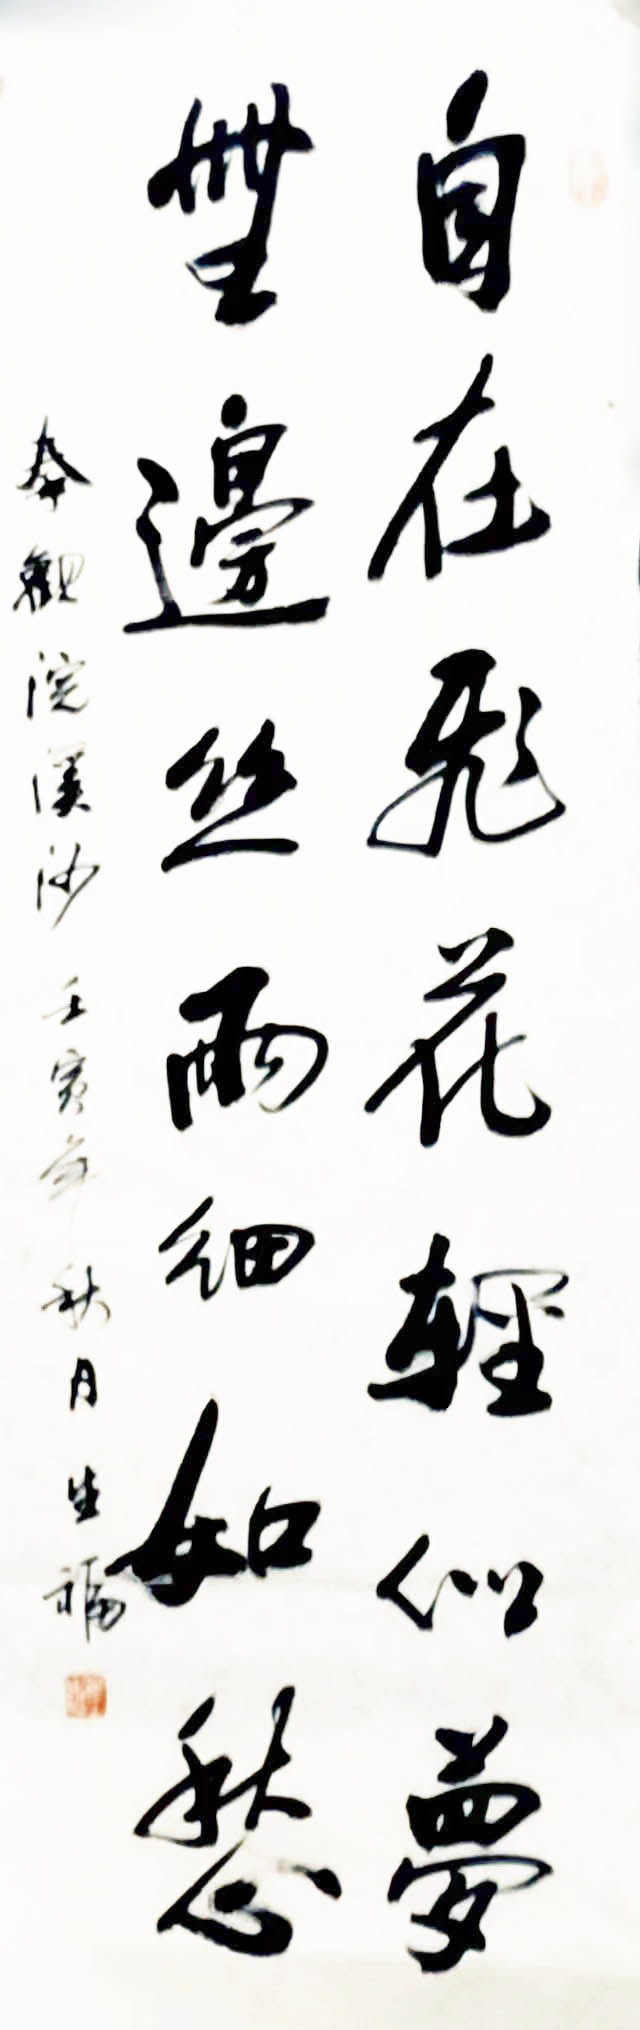 自在飛花輕似夢
無邊丝雨細如愁
秦觀浣溪沙 壬寅年秋月生福